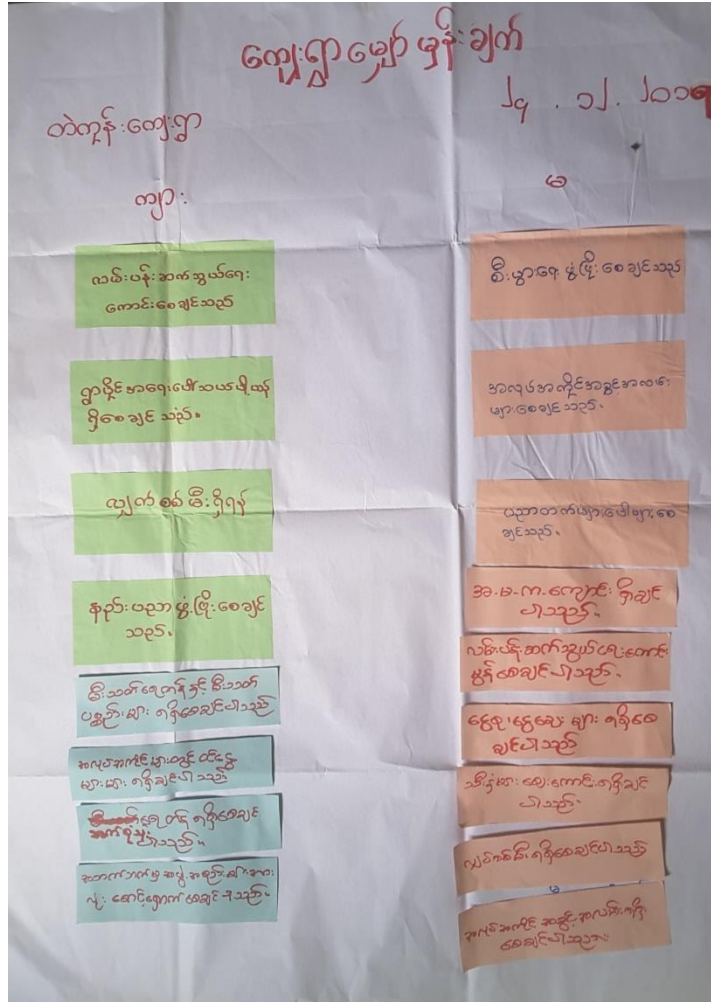 ကျေးရွာ မျှော် မှန်း ချက်
၂၄ . ၁၂ . ၂၀၁၈
တဲကုန်းကျေးရွာ
ကျား
မ
လမ်းပန်းဆက်သွယ်ရေး
ကောင်းစေချင်သည်
ရွာပိုင်အရေးပေါ်သယ်ယူပို့ယာဉ်
ရှိစေချင်သည်။
လျှက်စစ်မီးရှိရန်
နည်းပညာဖွံ့ဖြိုးစေချင်
သည်။
မီးသတ်ရေကန်နှင့် မီးသတ်
ပစ္စည်းများ ရရှိစေချင်ပါသည်
အလုပ်အကိုင်များတွင် ဝင်ငွေ
များများ ရရှိချင်ပါသည်
ရေကန် ရရှိစေချင်
ပါသည်။
အဖွဲ့အစည်းများအား
ဆောင်ရွက်စေချင်
စီးပွားရေးဖွံ့ဖြိုးစေချင်သည်
အလုပ်အကိုင်အခွင့်အလမ်း
များစေချင်သည်။
ပညာတက်များပေါများစေ
ချင်သည်။
အ.မ.က.ကျောင်း ရှိချင်
ပါသည်။
လမ်းပန်းဆက်သွယ်ရေးကောင်း
မွန်စေချင်ပါသည်။
ငွေရ များ ရရှိစေ
ချင်ပါသည်
သီးနှံများဈေးကောင်းရရှိချင်
ပါသည်။
လျှပ်စစ်မီးရရှိစေချင်ပါသည်
အလုပ်အကိုင် အခွင့်အလမ်းရရှိ
စေချင်ပါသည်။